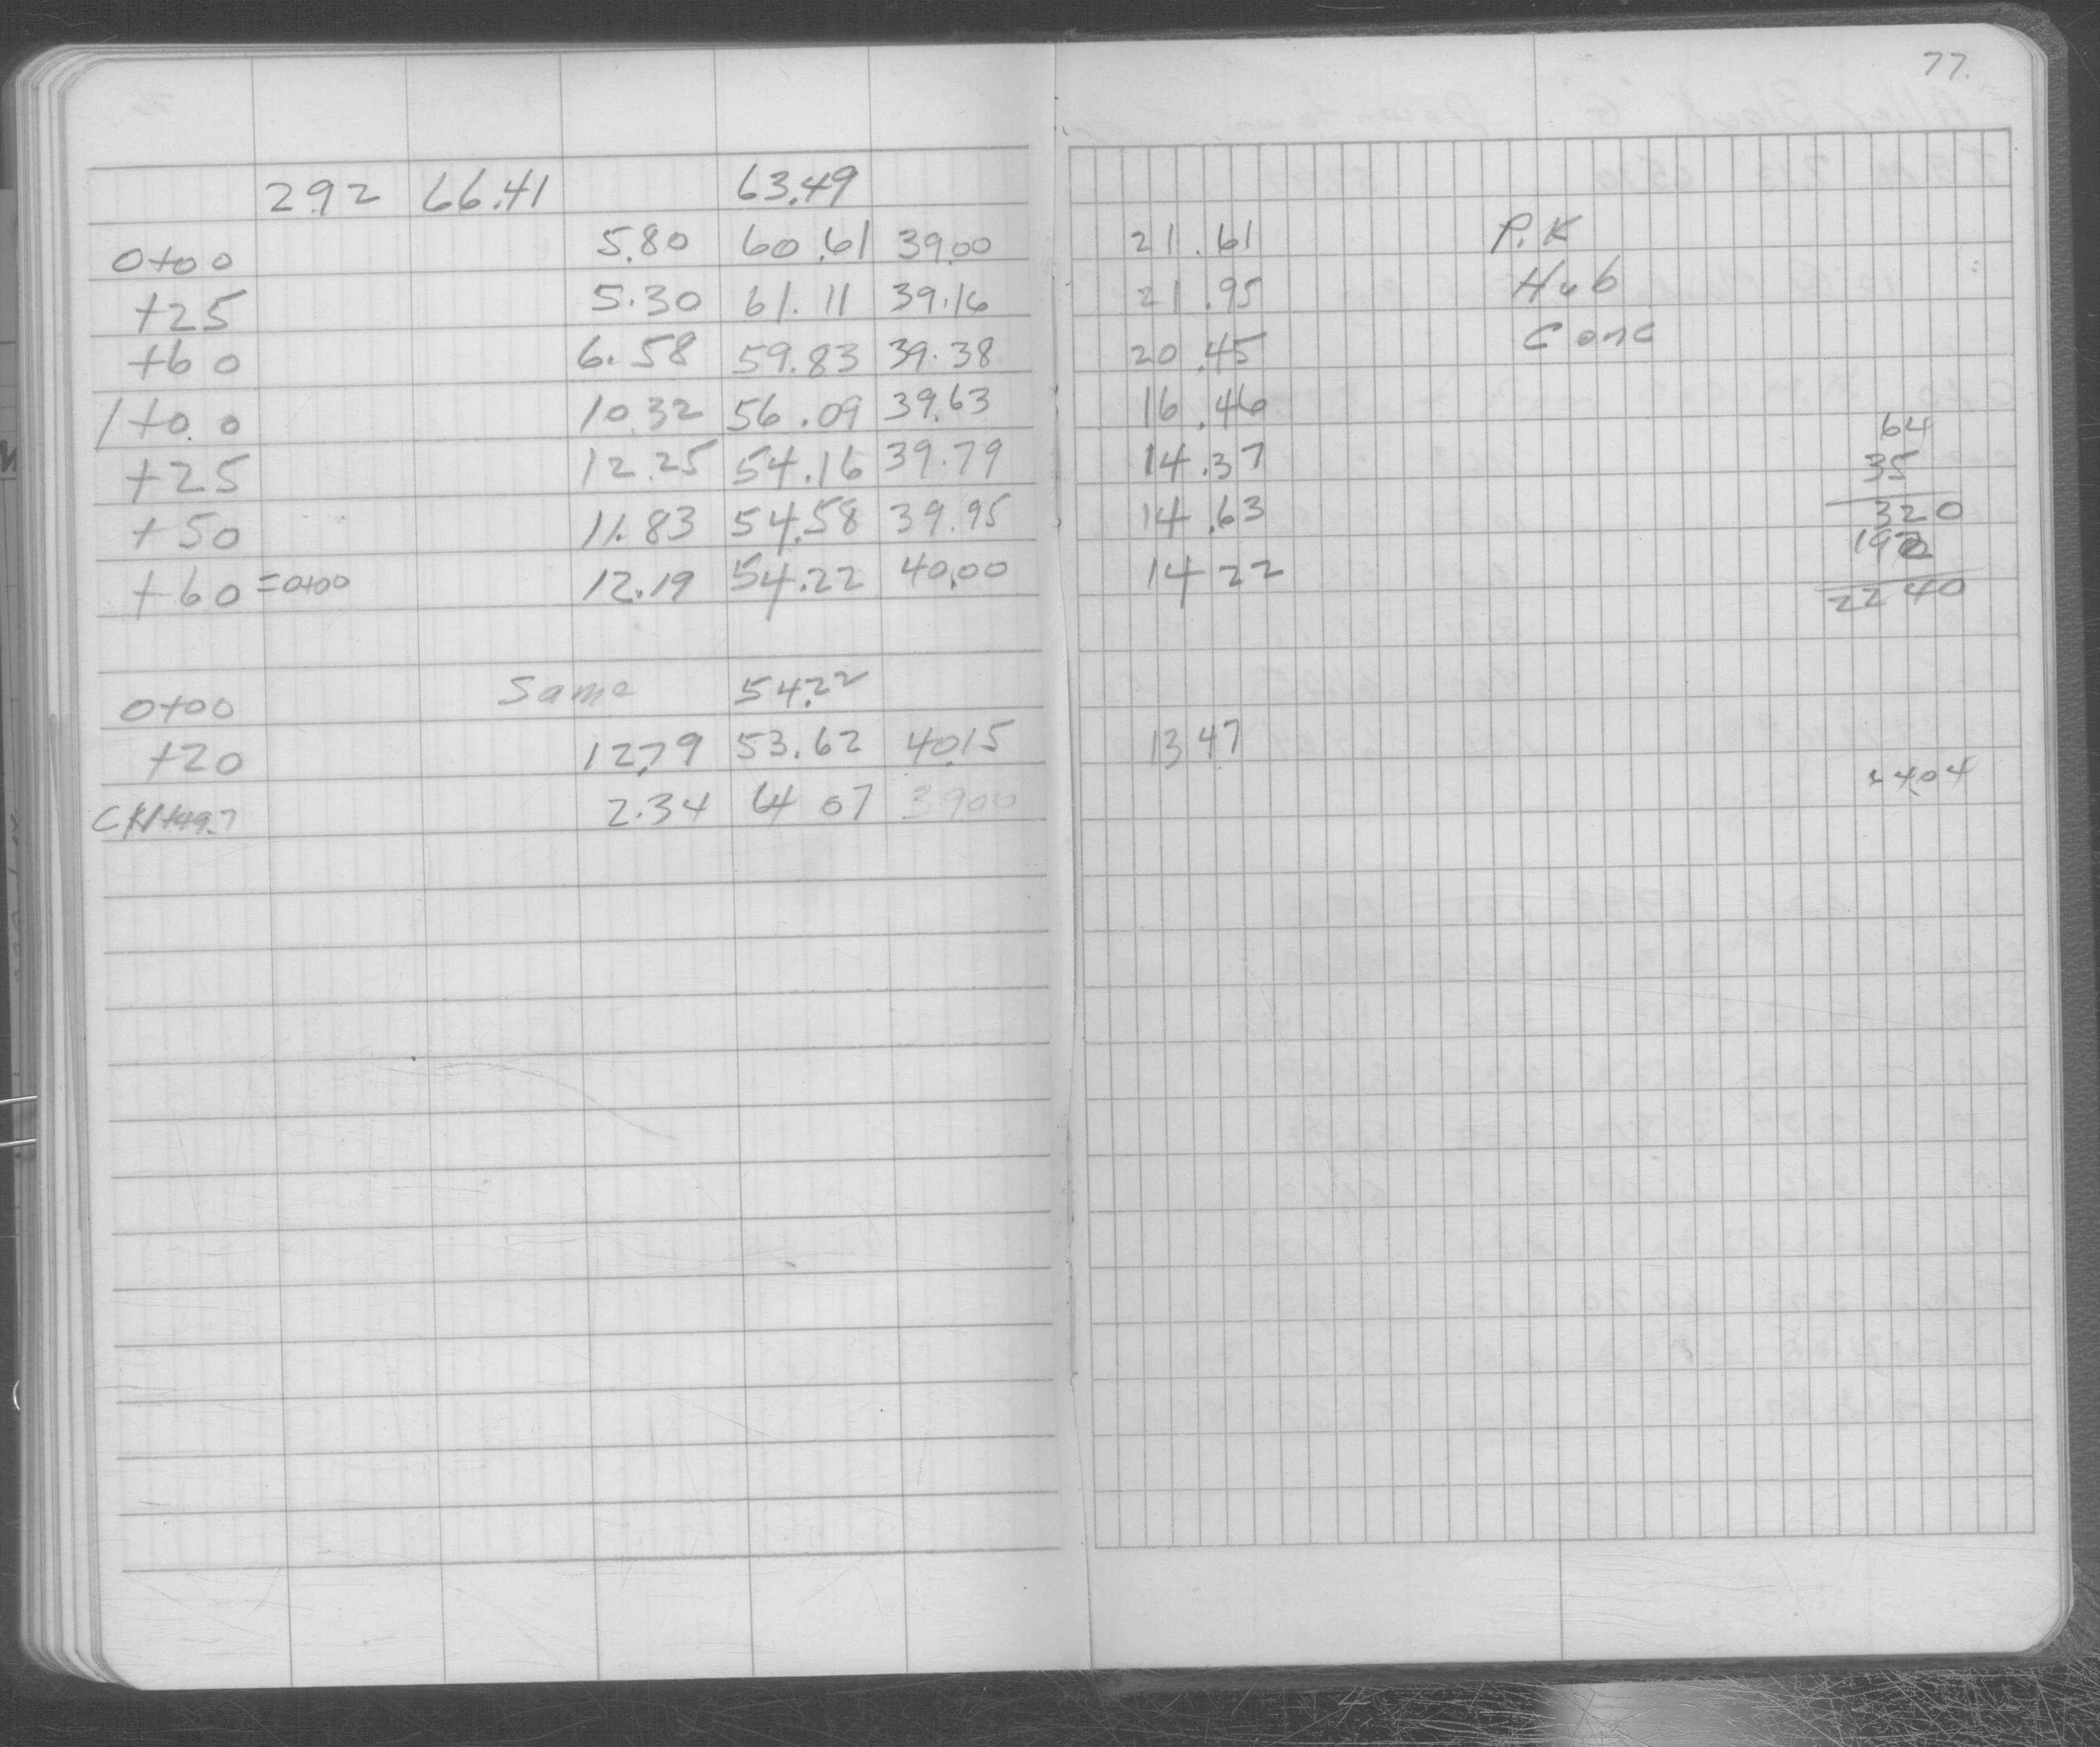 77.
292 66.41 63.49
0+00 5.80 60.61 39.00 21.61 P.K
+25 5.30 61.11 39.16 21.95 Hub
+60 6.58 59.83 39.38 20.45 Conc
1+00 10.32 56.09 39.63 16.46
+25 12.25 54.16 39.79 14.37
+50 11.83 54.58 39.95 14.63
+60=0+00 12.19 54.22 40.00 14 22
64
35
320
192
2240
0+00 Same 54.22
+20 12.79 53.62 40.15 13 47
2.34 64 07 3900